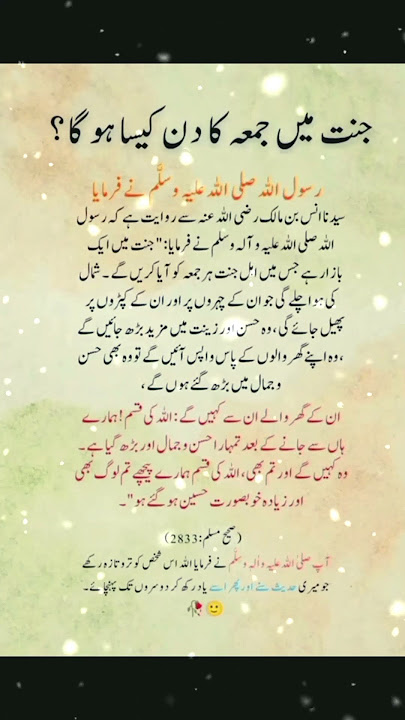 جنت میں جمعہ کا دن کیسا ہو گا؟
رسول اللہ صلی اللہ علیہ وسلَّم نے فرمایا
سیدنا انس بن مالک رضی اللہ عنہ سے روایت ہے کہ رسول
اللہ صلی اللہ علیہ و آلہ وسلم نے فرمایا: "جنت میں ایک
بازار ہے جس میں اہل جنت ہر جمعہ کو آیا کریں گے۔ شمال
کی ہوا چلے گی جو ان کے چہروں پر اور ان کے کپڑوں پر
پھیل جائے گی، وہ حسن اور زینت میں مزید بڑھ جائیں گے
،وہ اپنے گھر والوں کے پاس واپس آئیں گے تو وہ بھی حسن
و جمال میں بڑھ گئے ہوں گے،
ان کے گھر والے ان سے کہیں گے: اللہ کی قسم! ہمارے
ہاں سے جانے کے بعد تمہارا حسن و جمال اور بڑھ گیا ہے۔
وہ کہیں گے اور تم بھی، اللہ کی قسم ہمارے پیچھے تم لوگ بھی
اور زیادہ خوبصورت حسین ہو گئے ہو"۔
(صحیح مسلم:2833)
آپ صلیٰ اللہ علیہ والہ وسلَّم نے فرمایا اللہ اس شخص کو تروتازہ رکھے
جو میری حدیث سنے اور پھر اسے یاد رکھ کر دوسروں تک پہنچائے۔
🥀🙂